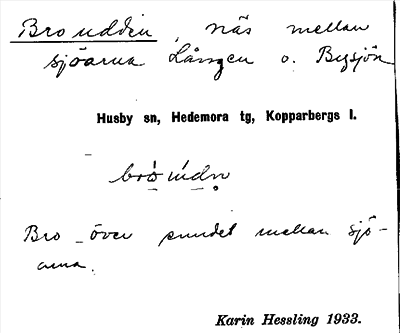 Brouddin, näs mellan
sjöarna Lången o. Bysjön
Husby sn, Hedemora tg, Kopparbergs l.
Bro över sundet mellan sjö-
arna.
Karin Hessling 1933.